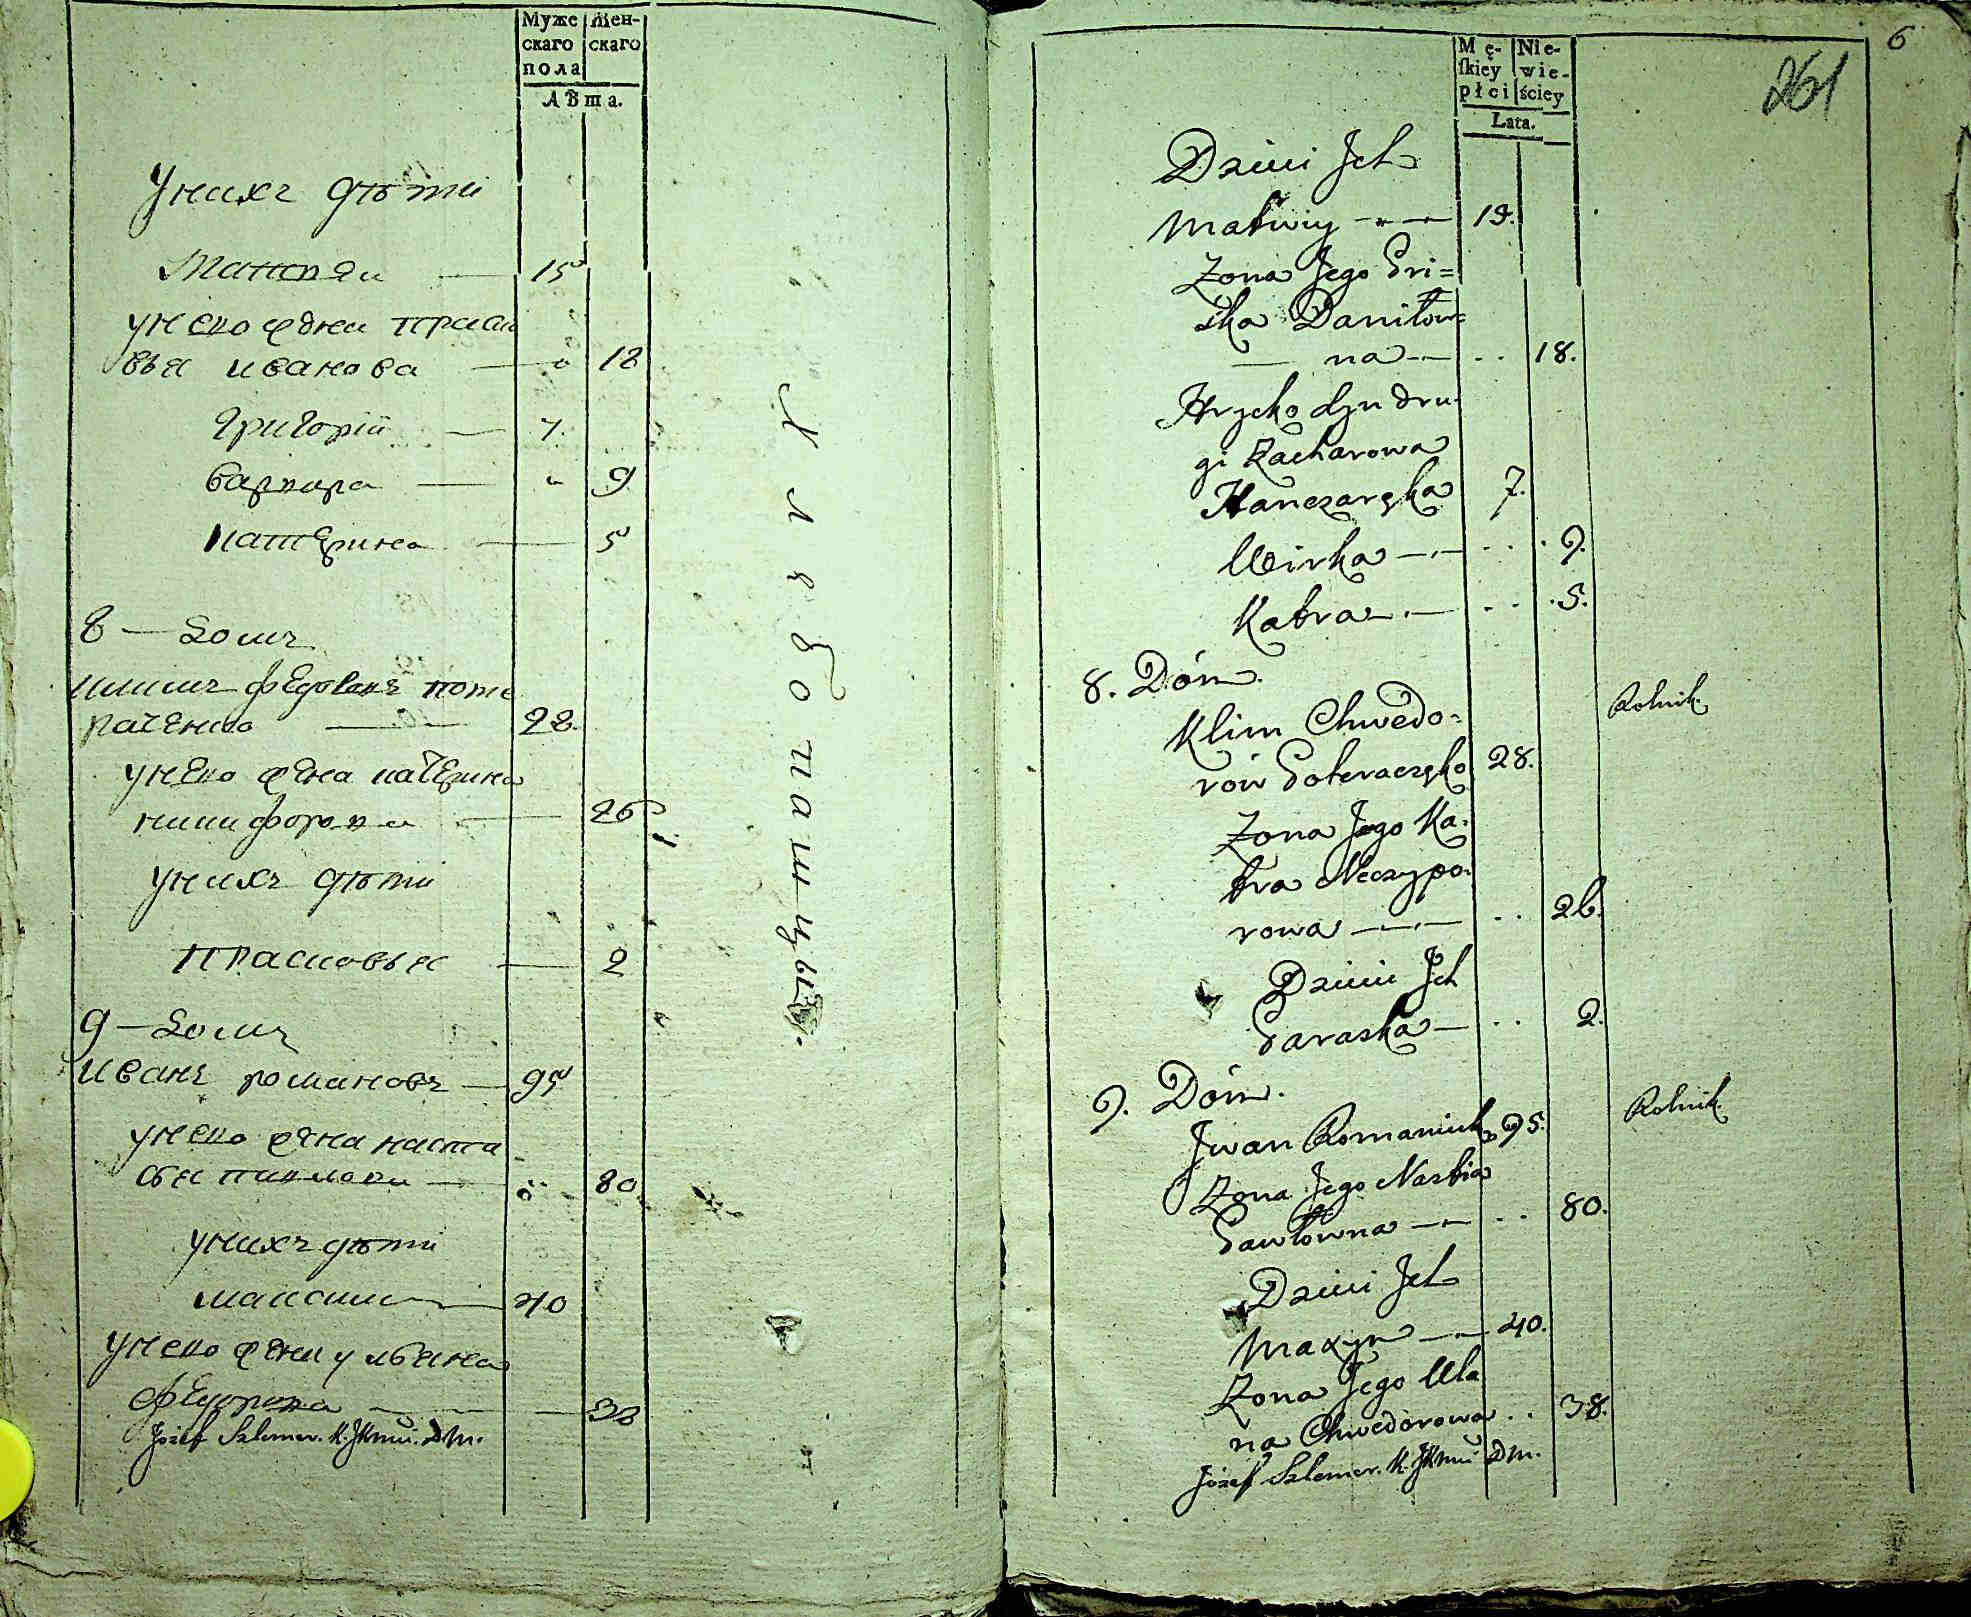 Муже
скаго
пола
Жен-
скаго
Лѣта.
Унихъ дѣти
Матвѣи — 15
унего жена Праско
вья иванова — " 18
Григорїй — 7.
варвара — " 9
катерина — 5
8 — Домъ
климъ федоровъ поте
раченко — 28.
унего жена катерина
никифорова — 26
унихъ дѣти
прасковья — 2
9 — Домъ
иванъ романовъ — 95
унего жена наста
сья павлова — 80
унихъ дѣти
максим — 40
унего жена ульяна
федорова — 38
Józef Szlemer. K. JKmci. Dm.
Хлебопашцы.
6
261
Mę-
ſkiey
płci
Nie-
wie-
ściey
Lata.
Dzieci Ich
Matwiy — 19.
Zona Jego Pri=
ska Daniłow=
na — .. 18.
Hrycko syn dru-
gi Zacharowa
Hanczaręka 7.
Wirka — .. 9.
Katra — .. 5.
8. Dóm.
Klim Chwedo-
rów Poteraczęko 28.
Rolnik.
Zona Jego Ka-
tra Neczypo-
rowa — .. 26.
Dzieci Ich
Paraska — .. 2.
9. Dóm.
Jwan Romaniuk 95.
Rolnik.
Zona Jego Nastia
Pawłowna — .. 80.
Dzieci Ich
Maxym — 40.
Zona Jego Ula
na Chwedorowa .. 38.
Józef Szlemer. K. JKmci Dm.